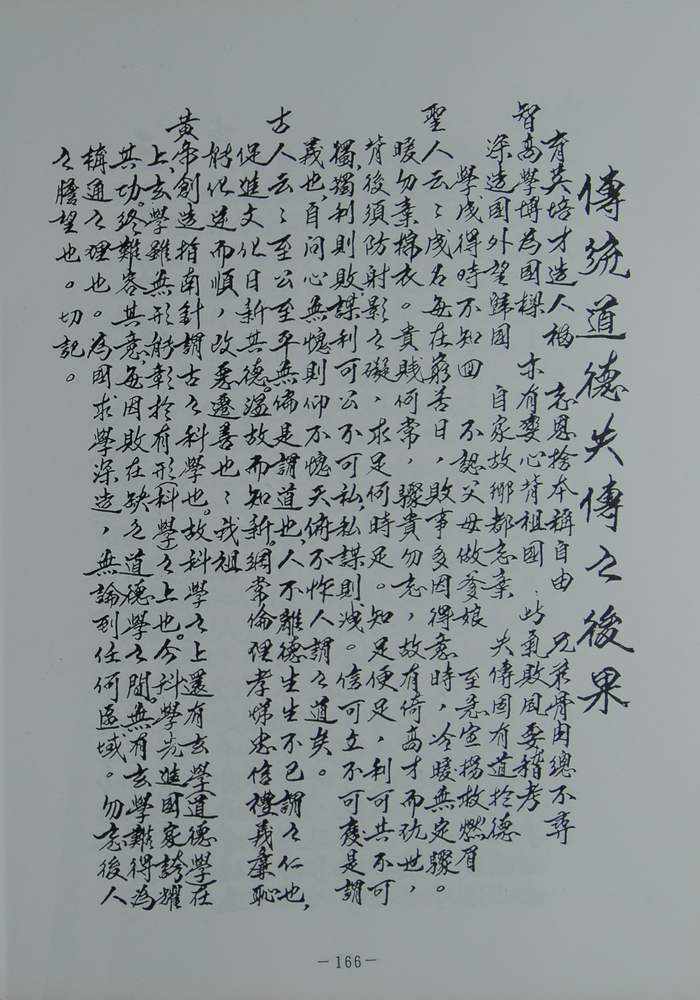 傳統道德失傳之後果
育英培才造人福　忘恩捨本稱自由　兄弟骨肉總不尋
智高學博為國樑　亦有變心背祖國　此風敗風要稽考
深造國外望歸國　自家故鄉都忘棄　失傳固有道於德
學成得時不知回　不認父母做爹娘　至急宣揚故燃眉
聖人云云成名每在窮苦日，敗事多因得意時，冷暖無定驟。
暖勿棄棉衣。貴賤何常，驟貴勿忘，故有倚高才而玩世，
背後須防射影之礙，求足何時足。知足便足，利可共不可
獨，獨利則敗，謀利可公不可私，私謀則洩。信可立不可廢是謂
義也，自問心無愧則仰不愧天俯不怍人謂之道矣。
古人云云至公至平無偏是謂道也，人不離德生生不已謂之仁也，
促進文化日新其德。溫故而知新。綱常倫理孝悌忠信禮義廉恥
始化逆而順，改惡遷善也，我祖
黃帝創造指南針謂古之科學也。故科學之上還有玄學道德學在
上，玄學雖無形能彰於有形科學之上也。今科學先進國家誇耀
其功。終難容其意，每因敗在缺之道德學之間。無有玄學難得為
稱通之理也。為國求學深造，無論到任何區域。勿忘後人
之瞻望也。切記。
－166－